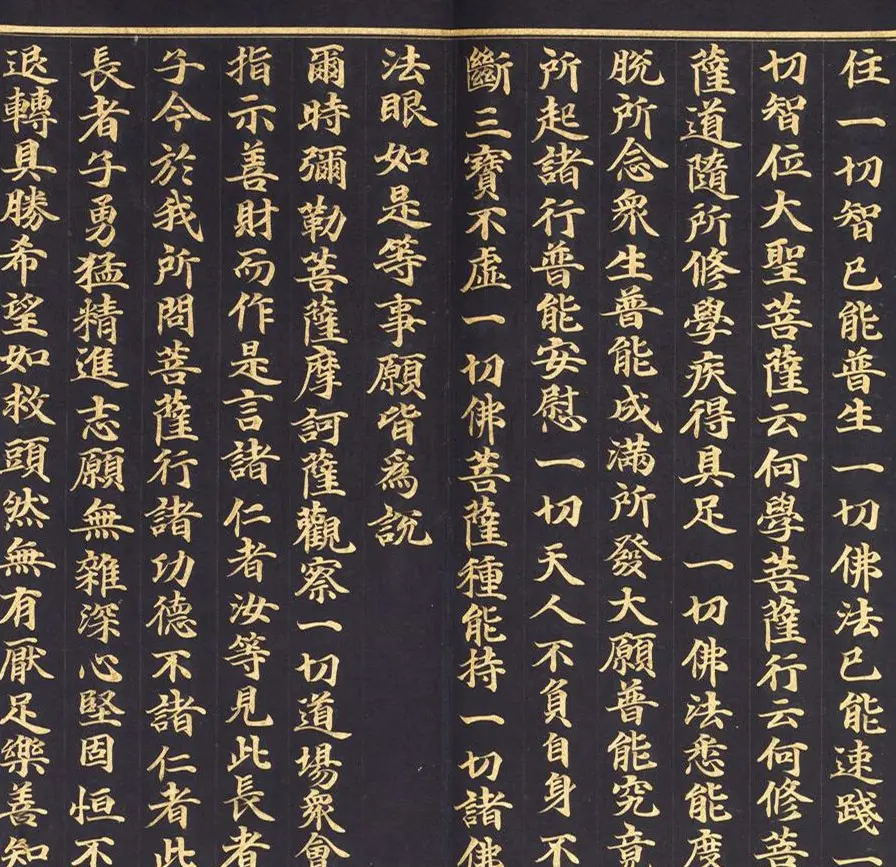 住一切智已能普生一切佛法已能速踐一
切智位大聖菩薩云何學菩薩行云何修菩
薩道隨所修學疾得具足一切佛法悉能度
脫所念衆生普能成滿所發大願普能究竟
所起諸行普能安慰一切天人不負自身不
斷三寶不虛一切佛菩薩種能持一切諸佛
法眼如是等事願皆爲說
爾時彌勒菩薩摩訶薩觀察一切道場衆會
指示善財而作是言諸仁者汝等見此長者
子今於我所問菩薩行諸功德不諸仁者此
長者子勇猛精進志願無雜深心堅固恒不
退轉具勝希望如救頭然無有厭足樂善知